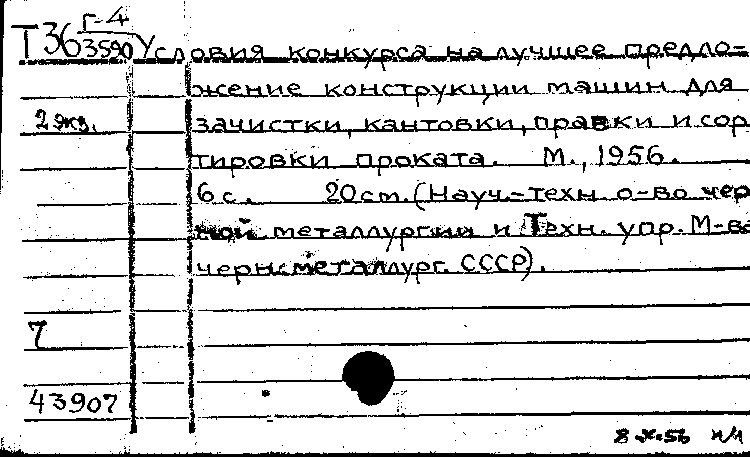 Г-4
Т36 3590 Условия конкурса на лучшее предло-
жение конструкции машин для
2 экз. зачистки, кантовки, правки и сор
тировки проката. М., 1956.
6 с. 20 см. (Науч.-техн. о-во чер
ной металлургии и Техн. упр. М-ва
черн. металлург. СССР).
7
43907
8 X-56